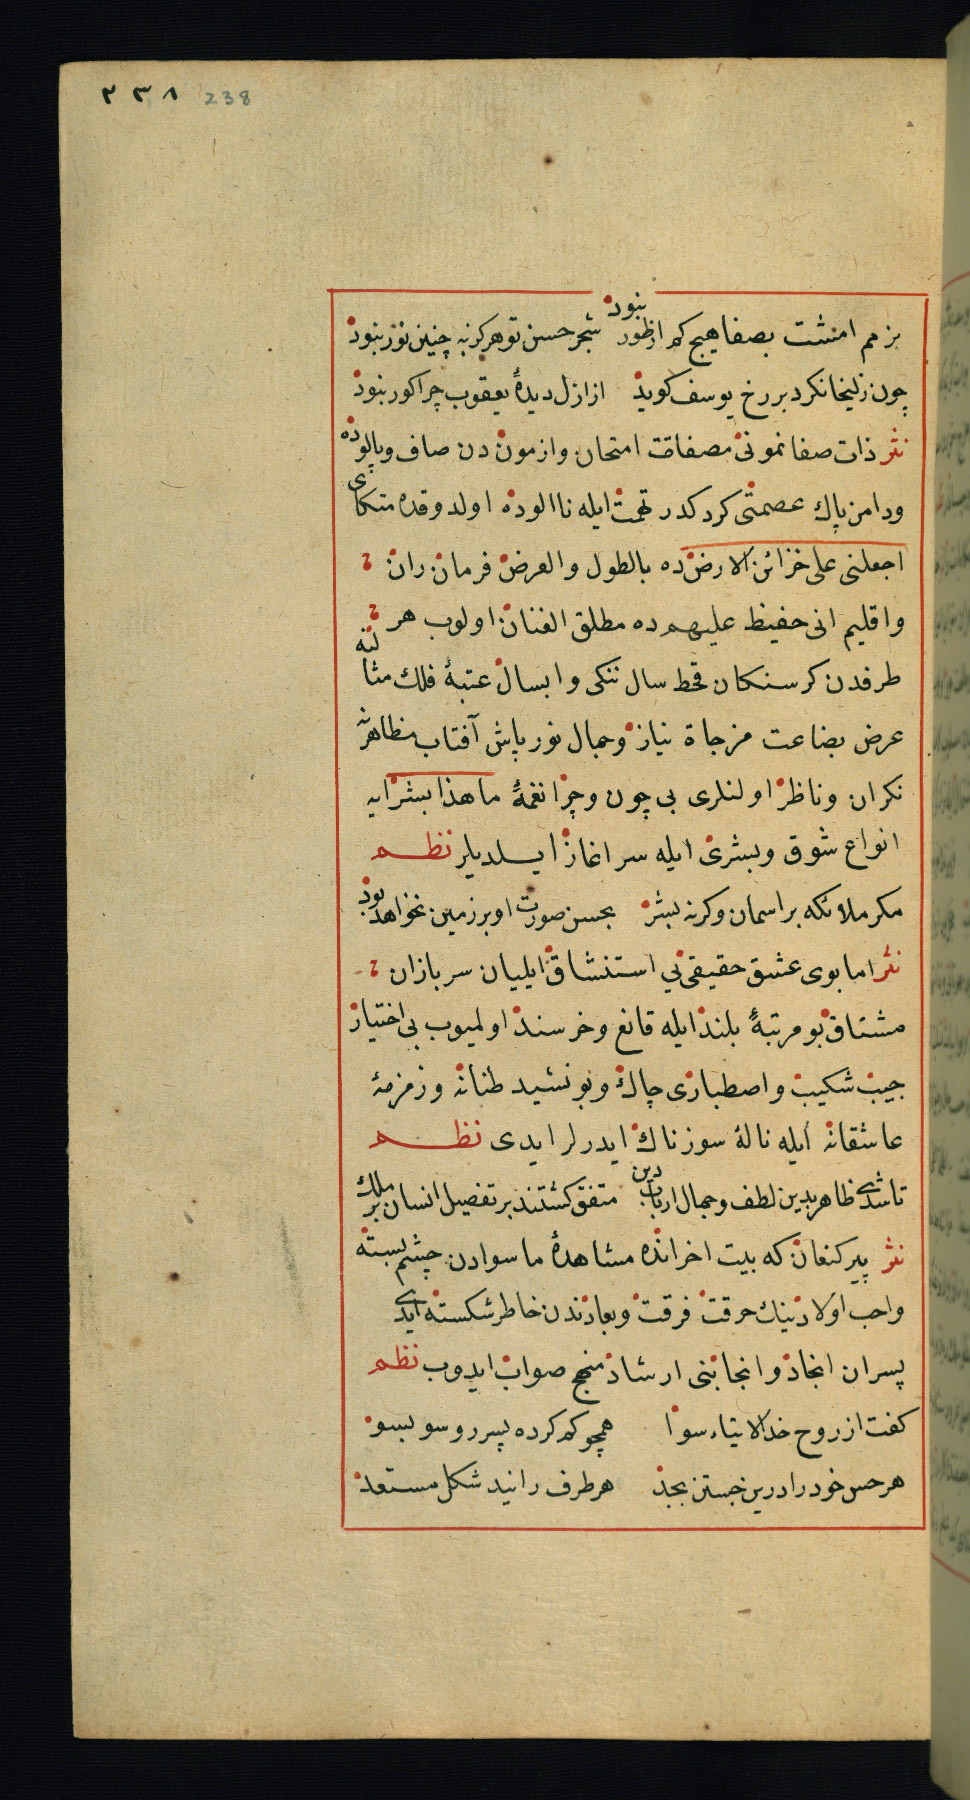 ۲۳۸ 238
بزمم امنشت بصفا هیچ کم ازظور بنود شجر حسن تو هرکز به چنین نوز بنود
چون زلیخا نکرد بر رخ یوسف کوید از ازل دیدۀ یعقوب چرا کور بنود
نثر ذات صفا نمونئ مصفاقت امتحان وازمون دن صاف و پالوده
ودامن پاك عصمتی کرد کدر تهمت ایله ناالوده اولد وقده متکای
اجعلنی علی خزائن الارض ده بالطول والعرض فرمان ران
واقلیم انی حفیظ علیهم ده مطلق الفنان اولوب هر
طرفدن کرسنکان قحط سال تنکی وابسال عتبۀ فلك مثالنه
عرض بضاعت مزجاة نیاز وجمال نور پاش آفتاب مظاهرنه
نکران وناظر اولنلری بی چون وچرا نغمۀ ما هذا بشرا یه
انواع شوق وبشری ایله سراغاز ایسلدیلر نظم
مکر ملائکه بر اسمان وکرنه بشر بحسن صورت او بر زمین نخواهد بود
نثر اما بوی عشق حقیقی نی استنشاق ایلیان سربازان
مشتاق بو مرتبۀ بلند ایله قانع وخرسند اولمیوب بی اختیار
جیب شکیب واصطبارى چاك وبو نشید طنانه وزمزمۀ
عاشقانه ایله نالۀ سوزناك ایدرلر ایدی نظم
تاشدی ظاهر بدین لطف وجمال ارباب دین متفق کشتند بر تفضیل انسان بر ملك
نثر پیر کنعان که بیت اخرانده مشاهدۀ ماسوادن چشم بسته
واحب اولادینك حرقت فرقت وبعادندن خاطر شکسته ایدی
پسران انجاد وانجابنی ارشاد منهج صواب ایدوب نظم
کفت از روح خدا لا تیاءسوا همچو کم کرده پسر رو سو بسو
هر حس خود را درین جستن بجد هر طرف رانید شکل مستعد